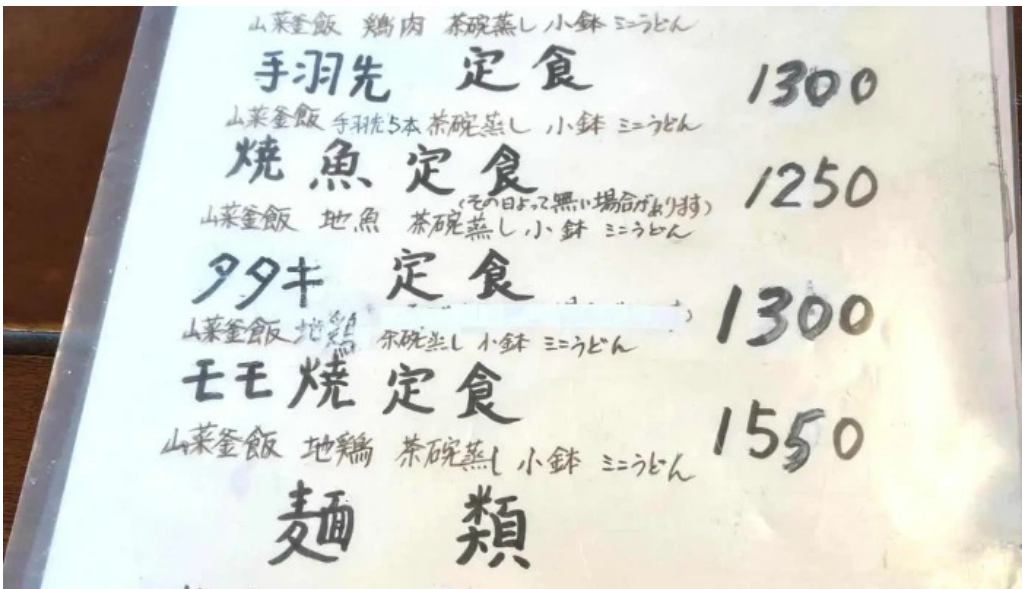 山菜釜飯 鶏肉 茶碗蒸し 小鉢 ミニうどん
手羽先 定食 1300
山菜釜飯 手羽先5本 茶碗蒸し 小鉢 ミニうどん
焼魚定食 1250
(その日よって無い場合があります)
山菜釜飯 地魚 茶碗蒸し 小鉢 ミニうどん
タタキ 定食 1300
山菜釜飯 地鶏 茶碗蒸し 小鉢 ミニうどん
モモ焼定食 1550
山菜釜飯 地鶏 茶碗蒸し 小鉢 ミニうどん
麺類